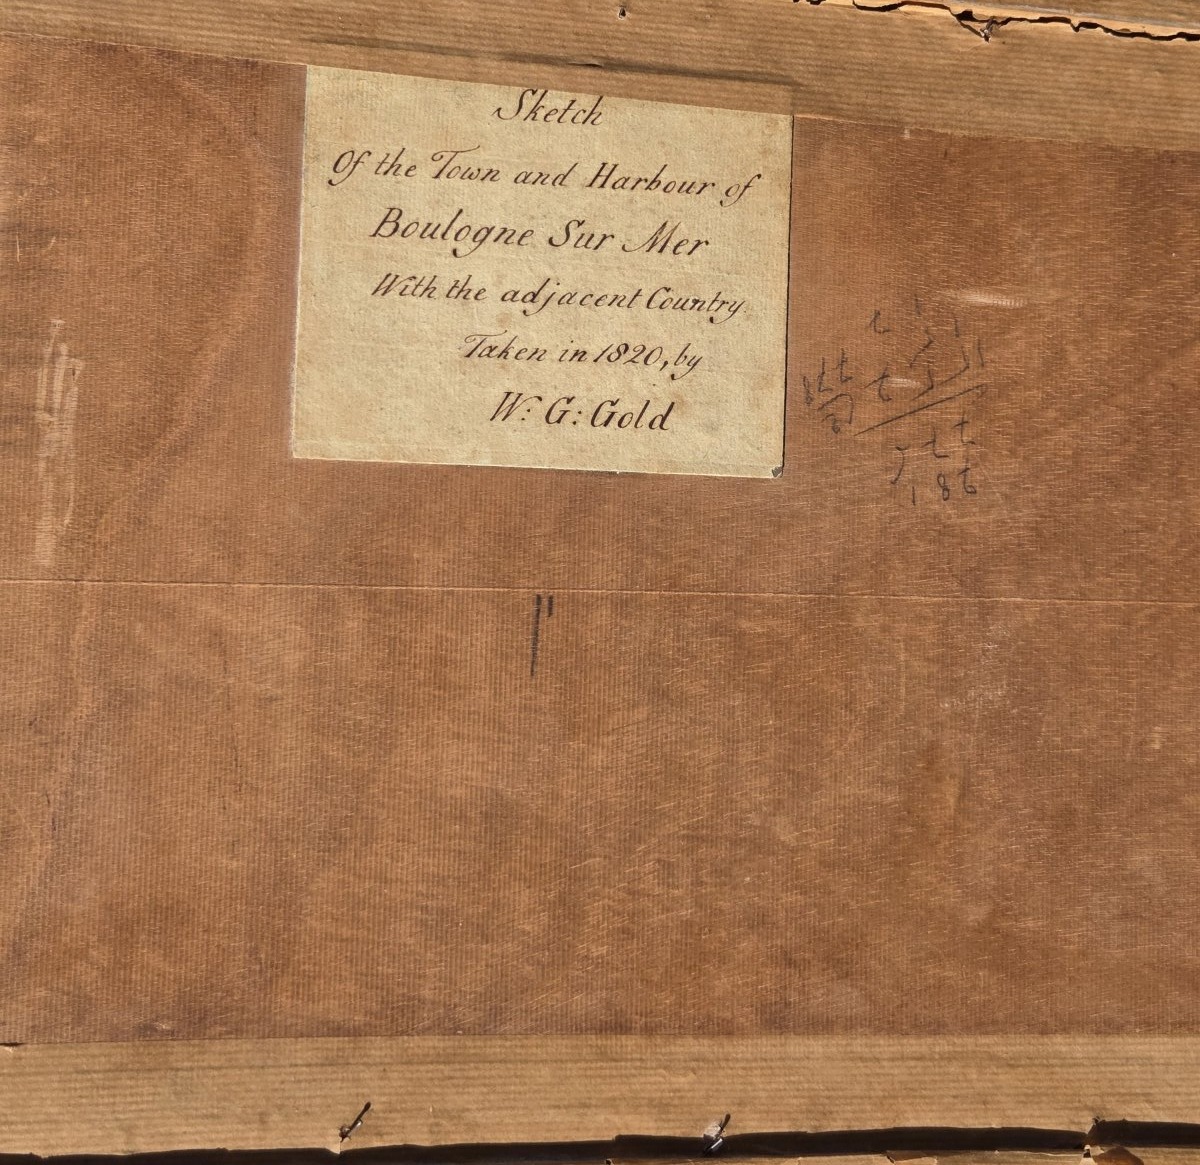 Sketch
Of the Town and Harbour of
Boulogne Sur Mer
With the adjacent Country
Taken in 1820, by
W: G: Gold